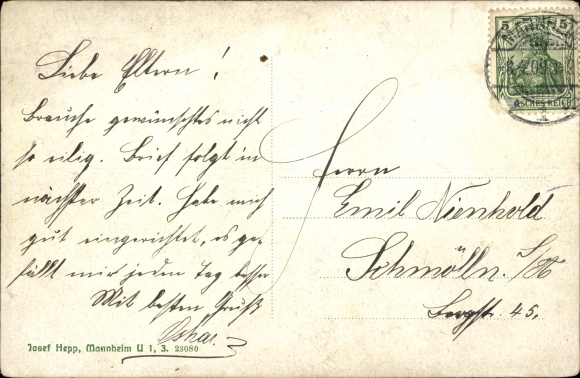 Liebe Eltern!
Brauche gewünschtes nicht
so eilig. Brief folgt in
nächster Zeit. Habe mich
gut eingerichtet, es ge-
fällt mir jeden Tag besser
Mit besten Gruß
Oskar.
Josef Hepp, Mannheim U 1, 3. 23080
5 5
SCHES REICH
Herrn
Emil Nienhold
Schmölln. S/A
Bergstr. 45.